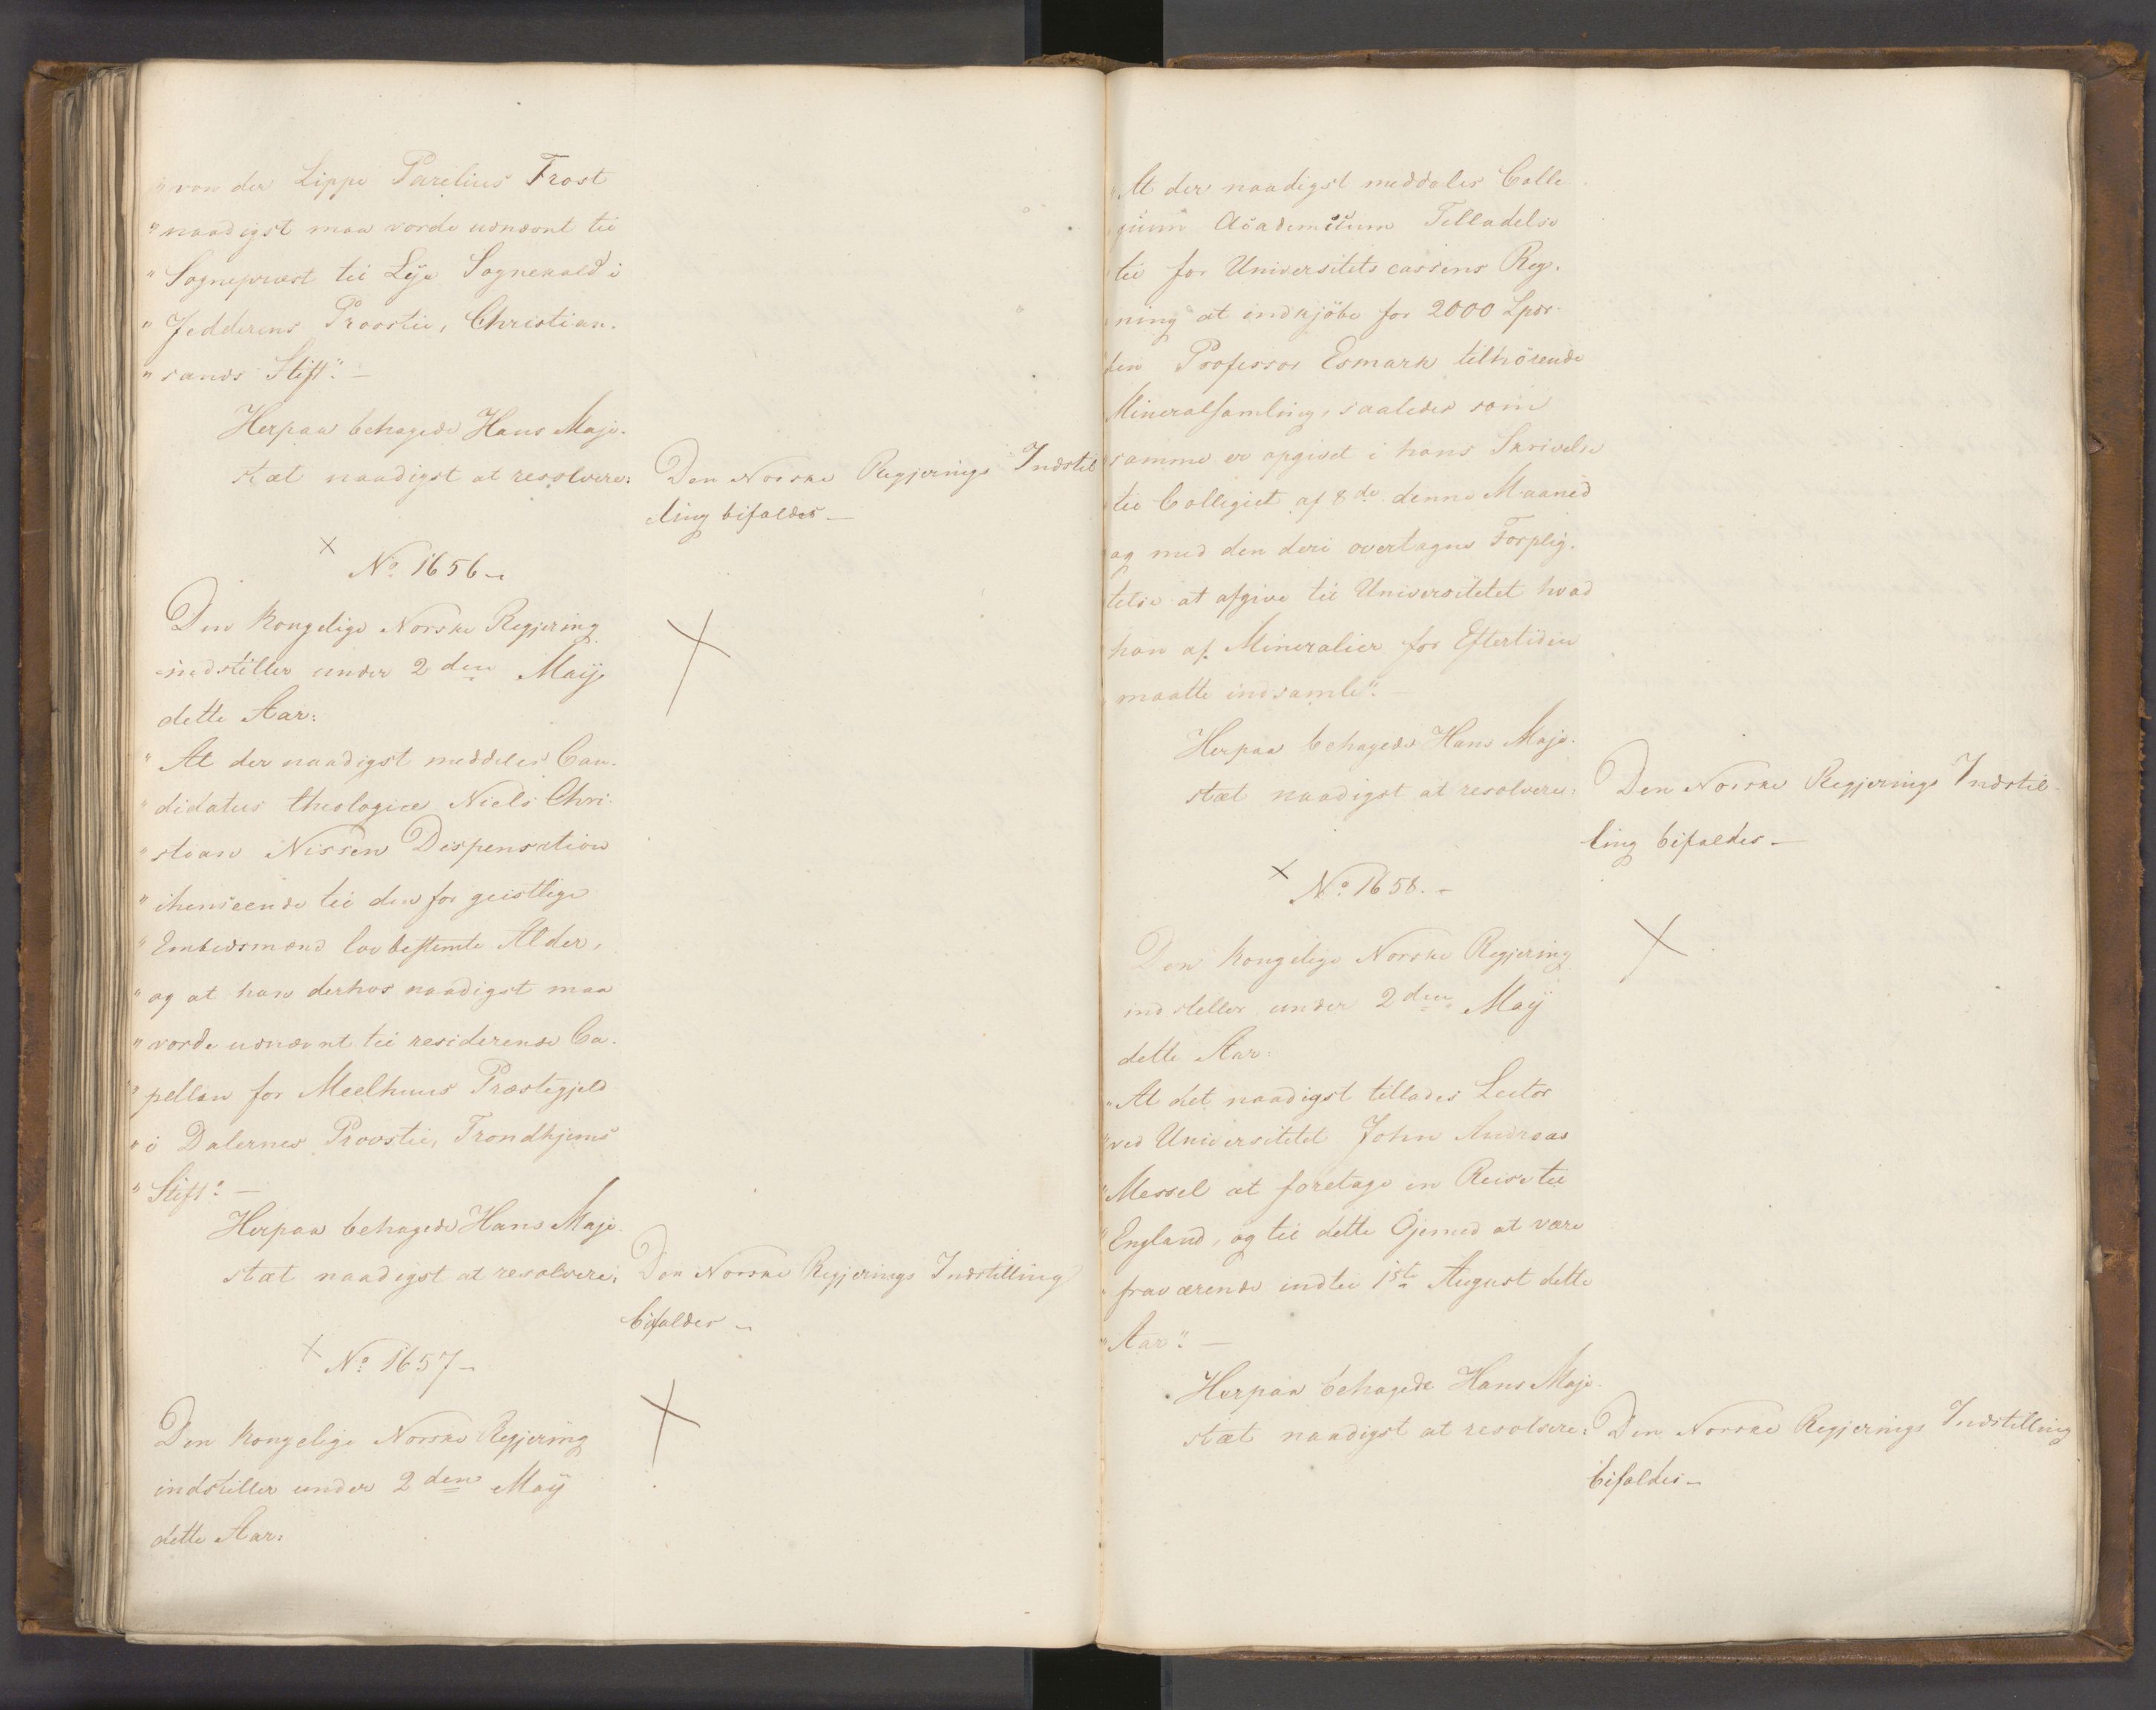 "von der Lippe Parelius Frost
"naadigst maa vorde udnævnt til
"Sognepræst til Lye Sognekald i
"Jedderens Provstie, Christian-
"sands Stift". —
Herpaa behagede Hans Maje-
stæt naadigst at resolvere:
Den Norske Regjerings Indstil
ling bifaldes —
× No 1656 —
Den kongelige Norske Regjering
indstiller under 2den Maÿ
dette Aar:
"At der naadigst meddeles Can-
"didatus theologiæ Niels Chri-
"stian Nissen Dispensation
"ihenseende til den for geistlige
"Embedsmænd lovbestemte Alder,
"og at han derhos naadigst maa
"vorde udnævnt til residerende Ca-
"pellan for Meelhuus Præstegjeld
"i Dalernes Provstie, Trondhjems
"Stift". —
Herpaa behagede Hans Maje-
stæt naadigst at resolvere:
Den Norske Regjerings Indstilling
bifaldes —
× No 1657 —
Den kongelige Norske Regjering
indstiller under 2den Maÿ
dette Aar:
"At der naadigst meddeles Colle-
"gium Academicum Tilladelse
"til for Universitetscassens Reg-
"ning at indkjöbe for 2000 Spdr
"den Professor Esmark tilhörende
"Mineralsamling, saaledes som
"samme er opgivet i hans Skrivelse
"til Collegiet af 8de denne Maaned
"og med den deri overtagne Forplig-
"telse at afgive til Universitetet hvad
"han af Mineralier for Eftertiden
"maatte indsamle". —
Herpaa behagede Hans Maje-
stæt naadigst at resolvere:
Den Norske Regjerings Indstil-
ling bifaldes —
× No 1658. —
Den kongelige Norske Regjering
indstiller under 2den Maÿ
dette Aar:
"At det naadigst tillades Lector
"ved Universitetet John Andreas
"Messel at foretage en Reise til
"England, og til dette Öjemed at være
"fraværende indtil 1ste August dette
"Aar". —
Herpaa behagede Hans Maje-
stæt naadigst at resolvere:
Den Norske Regjerings Indstilling
bifaldes —